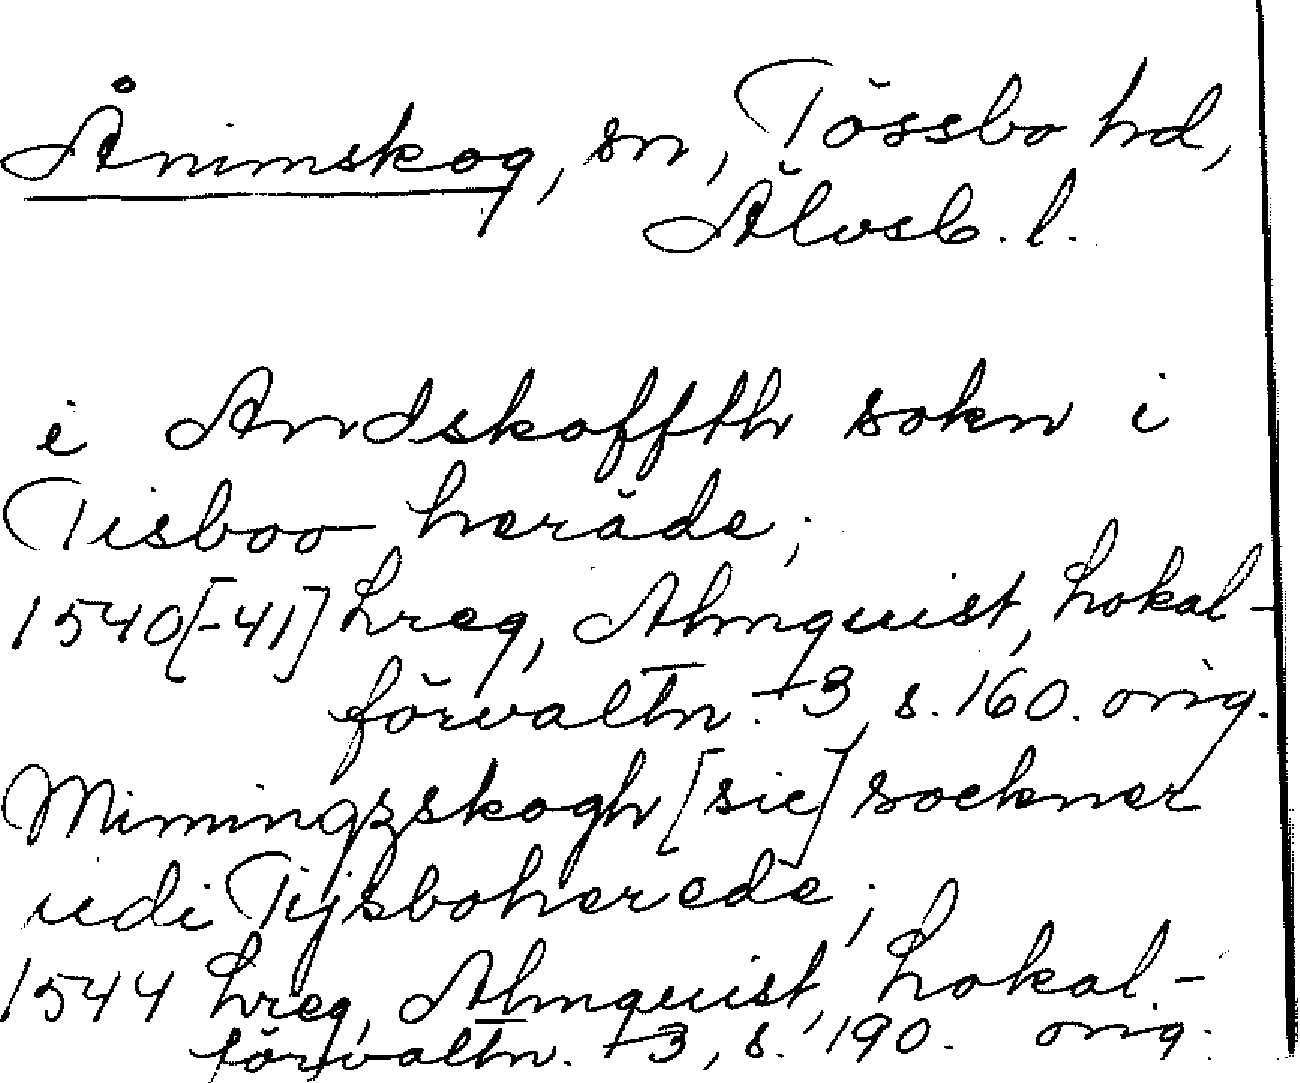 Ånimskog, sn, Tössbo hd,
Älvsb. l.
i Andskoffth sokn i
Tisboo heräde;
1540[-41] Lreg, Almquist, Lokal-
förvaltn. +3, s. 160. orig.
Mimingzskogh [sic] sockner
udi Tijsboherede;
1544 Lreg, Almquist, Lokal.-
förvaltn. +3, s. 190. orig.